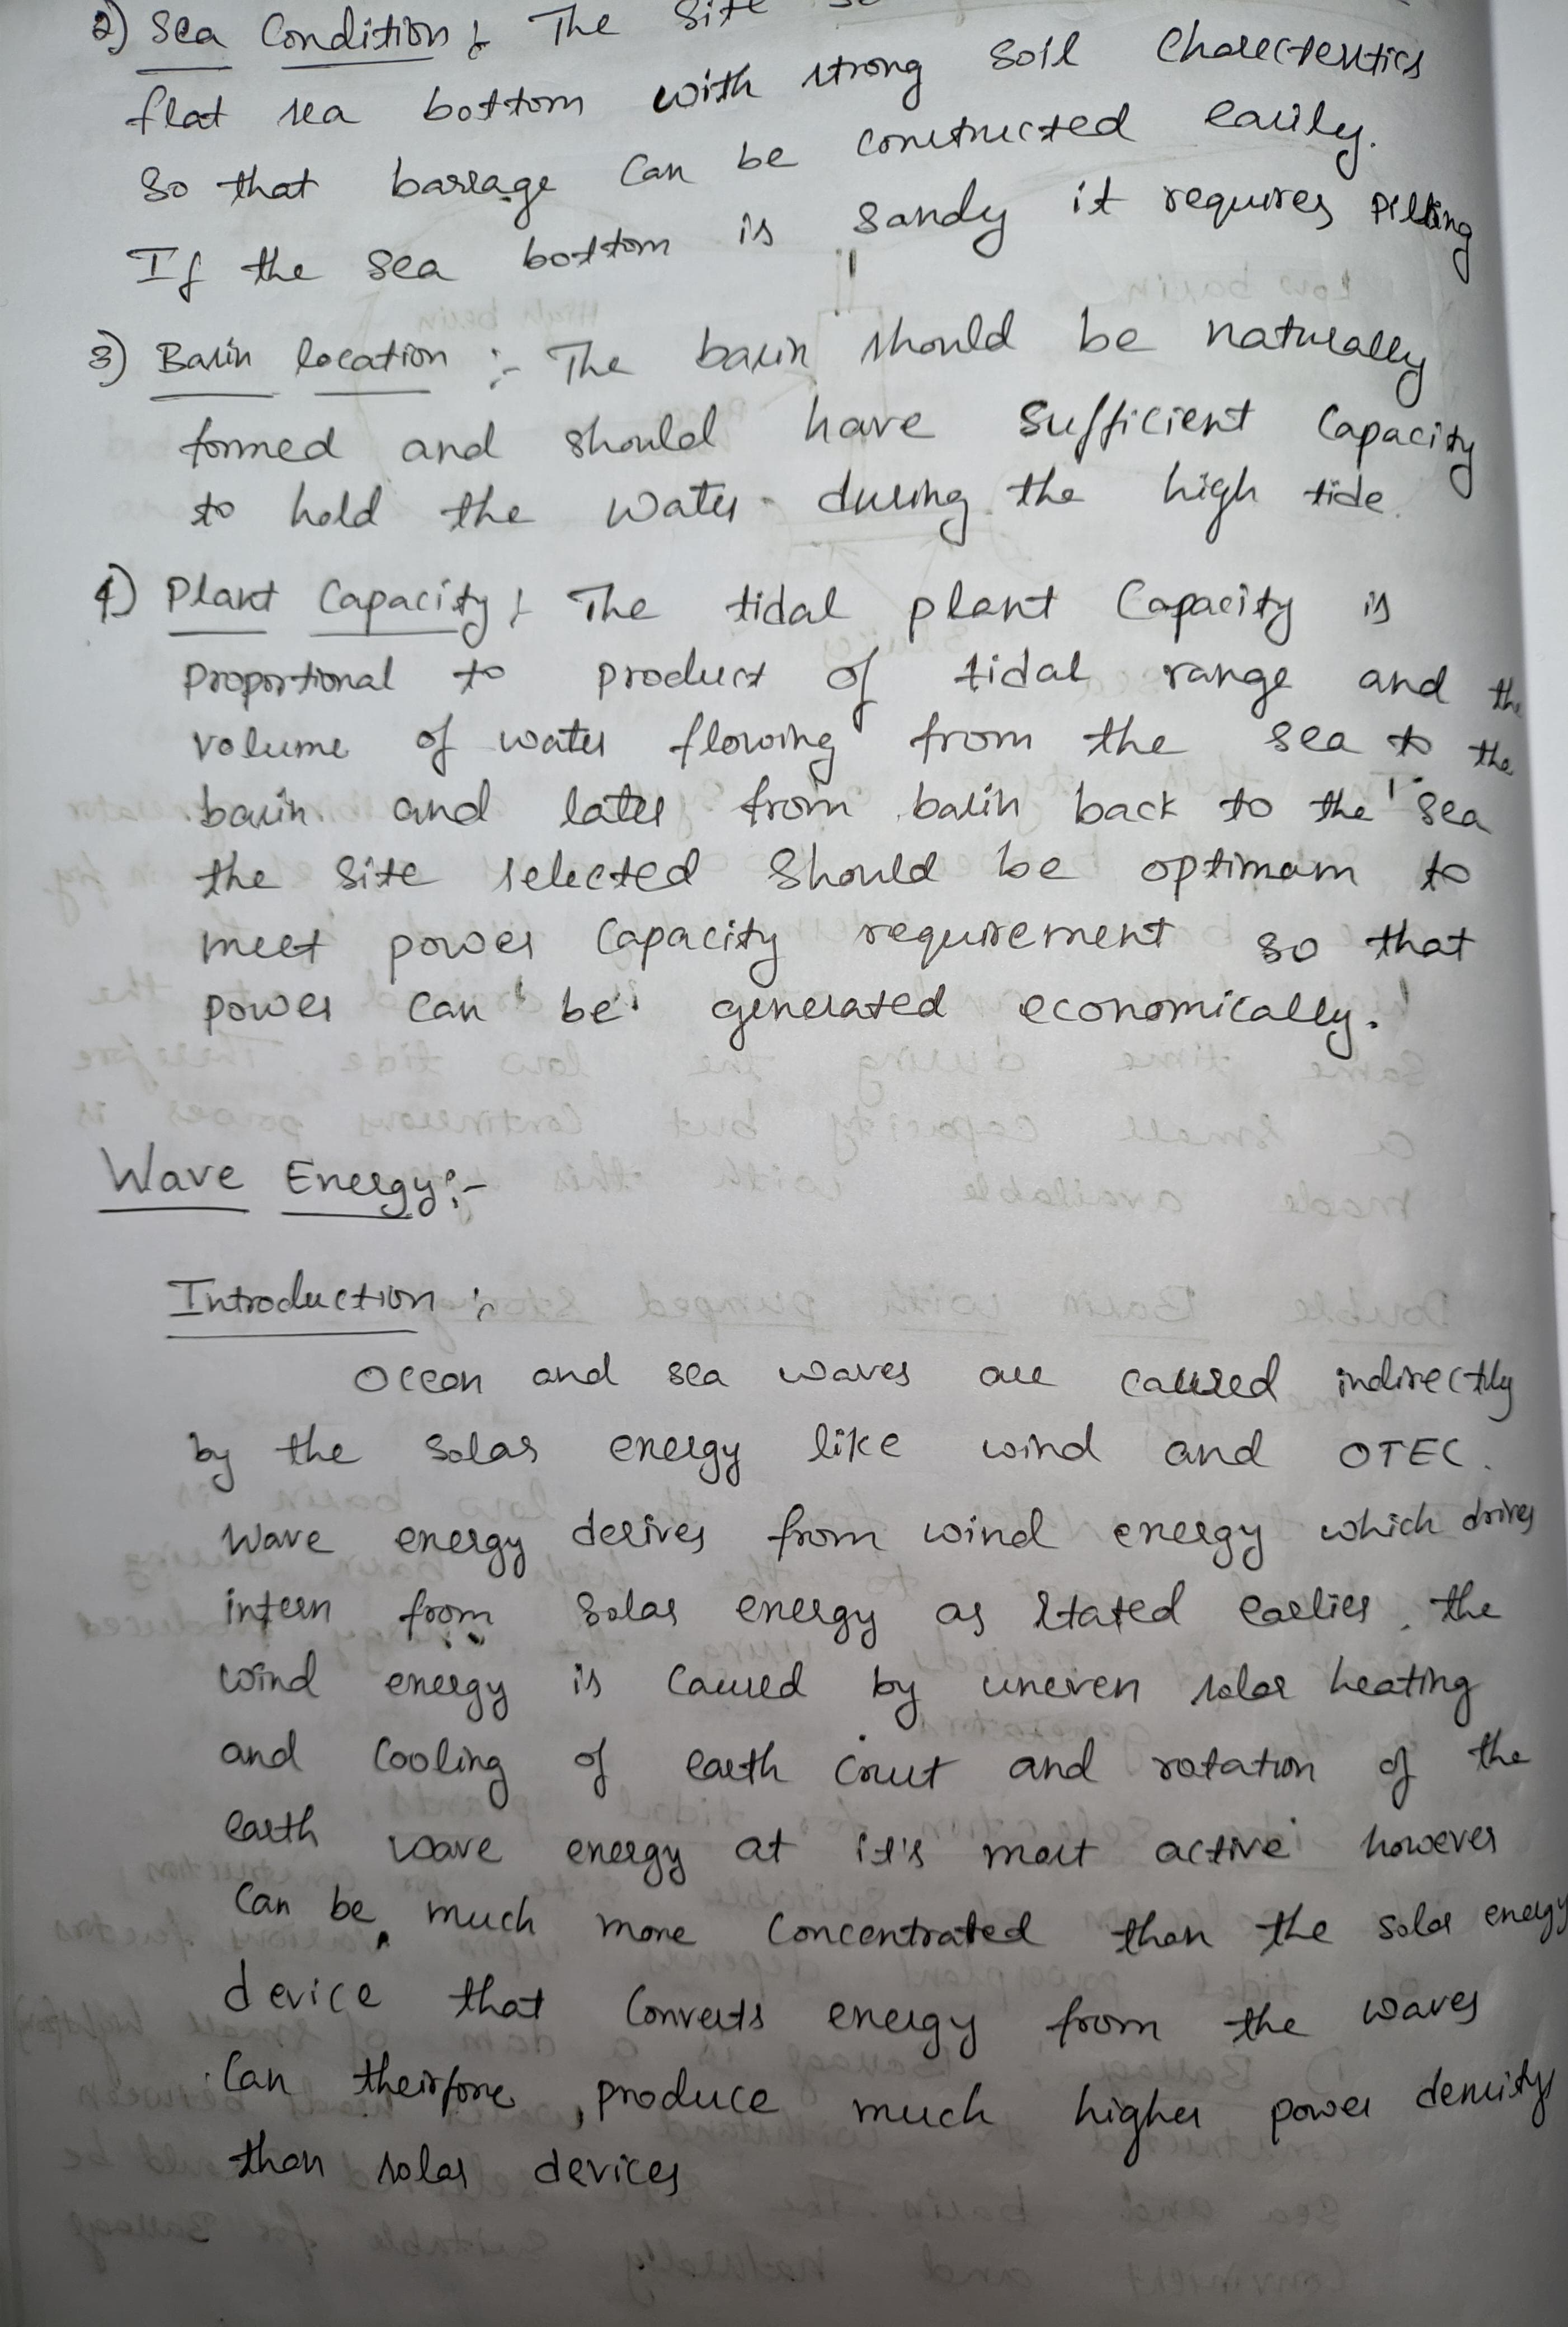 2) Sea Condition :- The Site
flat sea bottom with strong soil Charecterstics
So that barrage Can be constructed easily.
If the sea bottom is sandy it requires pilling
3) Basin location :- The basin should be naturally
formed and should have sufficient Capacity
to hold the water during the high tide.
4) Plant Capacity :- The tidal plant Capacity is
proportional to product of tidal range and the
volume of water flowing from the sea to the
basin and later from basin back to the sea
the site selected should be optimam to
meet power Capacity requirement so that
power can be generated economically.
Wave Energy :-
Introduction :-
Ocean and sea waves are caused indirectly
by the solar energy like wind and OTEC.
Wave energy derives from wind energy which drives
intern from solar energy as stated earlier. the
wind energy is caused by uneven solar heating
and cooling of earth crust and rotation of the
earth wave energy at it's most active however
Can be much more concentrated than the solar energy
device that Converts energy from the waves
Can theirfore, produce much higher power density
than solar devices